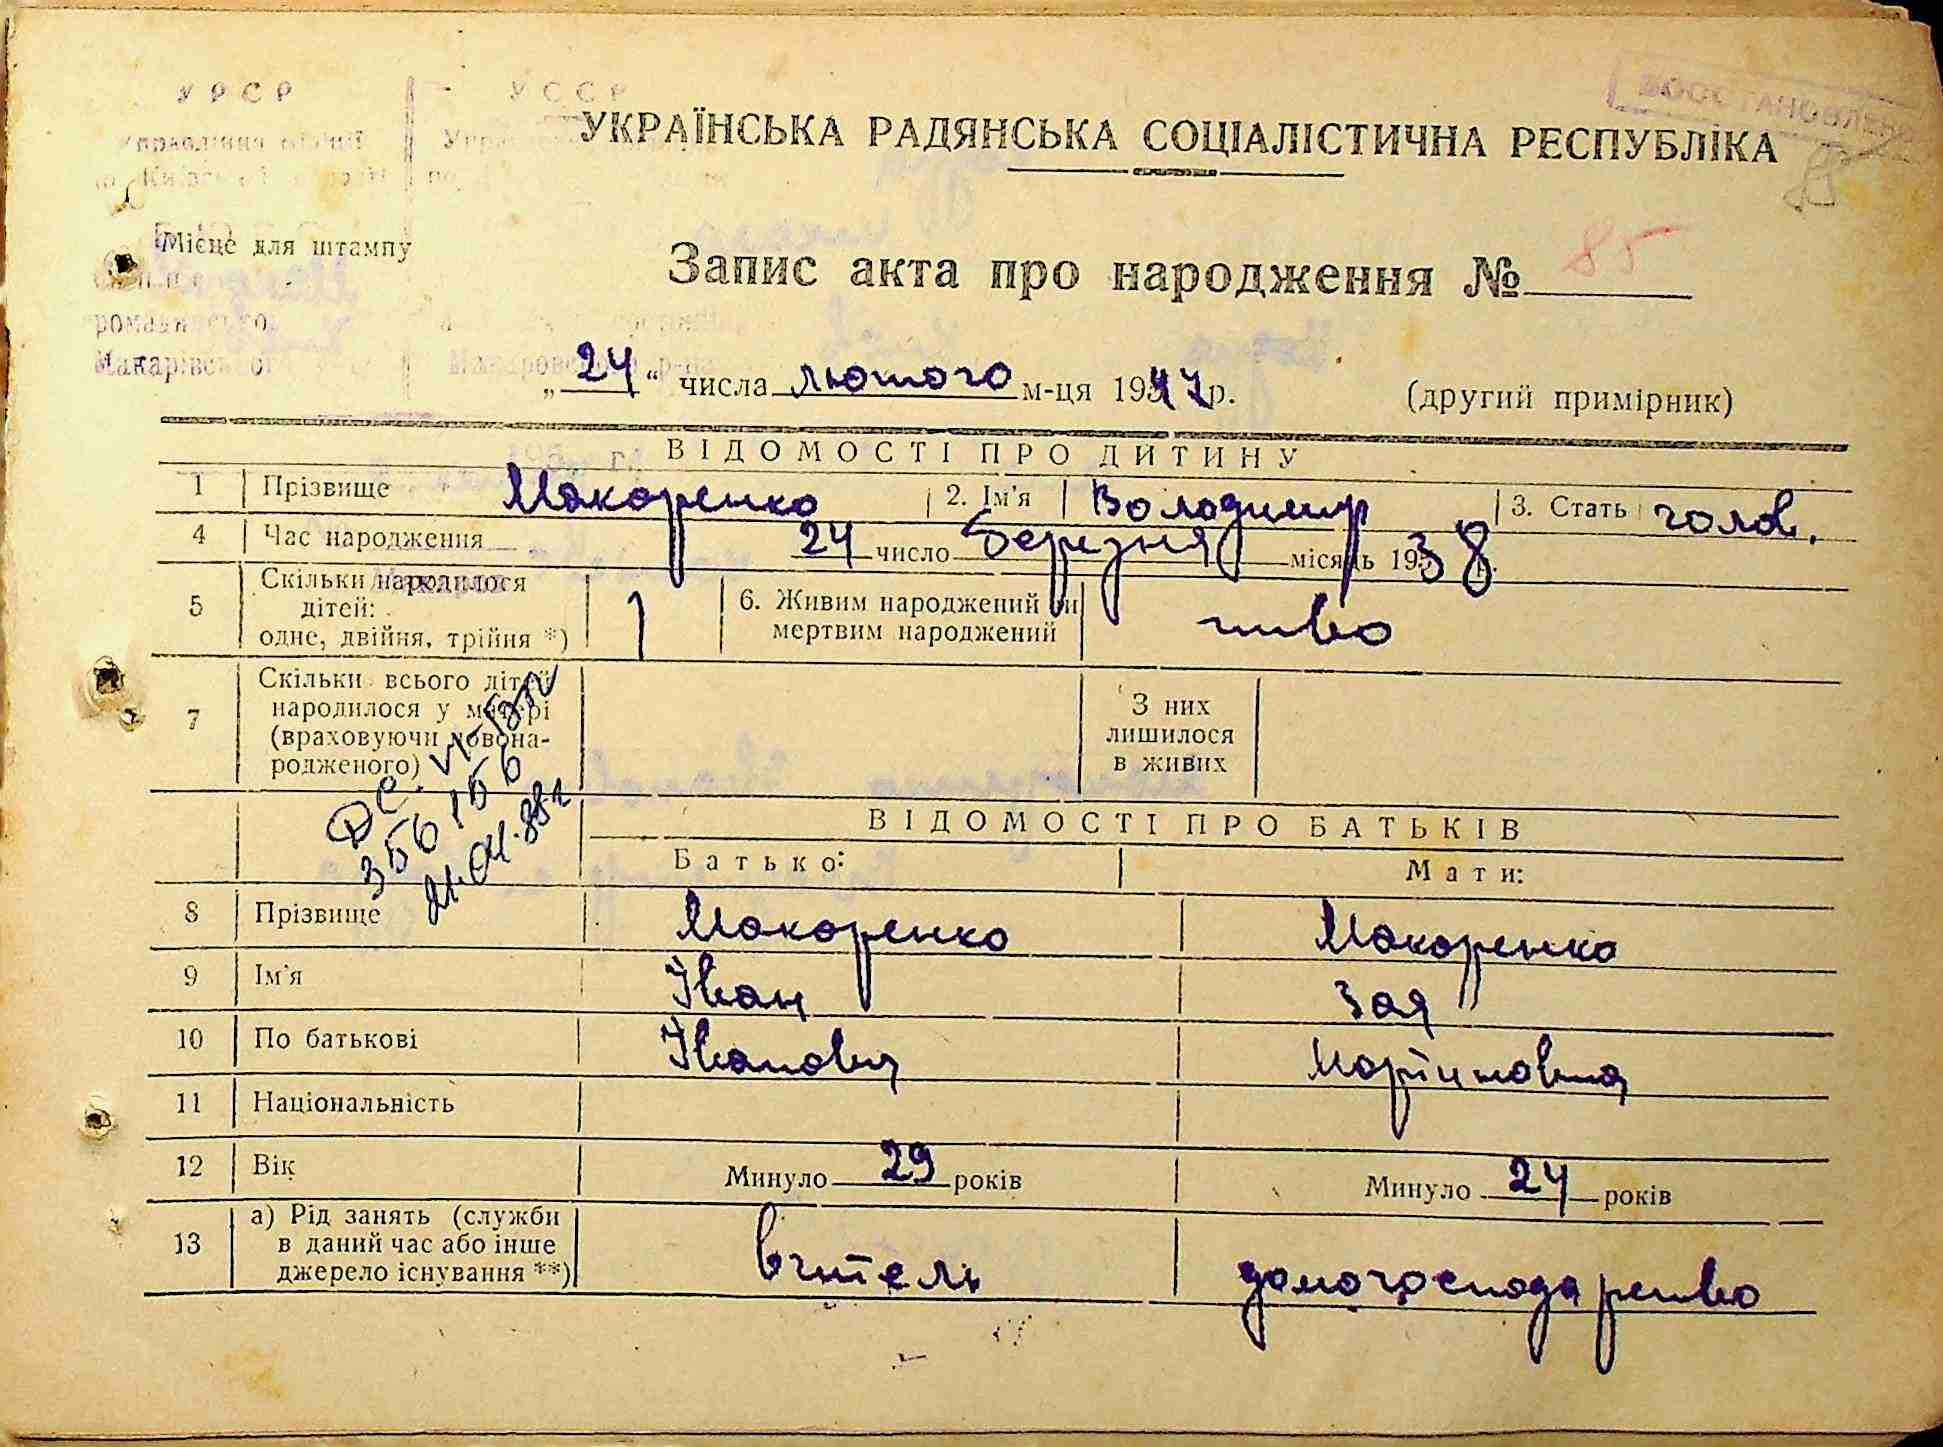 УРСР УССР
ВОССТАНОВЛЕНО
УКРАЇНСЬКА РАДЯНСЬКА СОЦІАЛІСТИЧНА РЕСПУБЛІКА
Місце для штампу
Запис акта про народження № 85
Макарівського
„24“ числа лютого м-ця 1947р. (другий примірник)
ВІДОМОСТІ ПРО ДИТИНУ
1 Прізвище Макаренко 2. Ім'я Володимир 3. Стать чолов.
4 Час народження 24 число березня місяць 1938 р.
5 Скільки народилося дітей: одне, двійня, трійня *) 1 6. Живим народжений чи мертвим народжений живо
7 Скільки всього дітей народилося у матері (враховуючи новонародженого) З них лишилося в живих
356156
ВІДОМОСТІ ПРО БАТЬКІВ
Батько: Мати:
8 Прізвище Макаренко Макаренко
9 Ім'я Іван Зоя
10 По батькові Іванович Мартиновна
11 Національність
12 Вік Минуло 29 років Минуло 24 років
13 а) Рід занять (служби в даний час або інше джерело існування **) вчитель домогосподарство